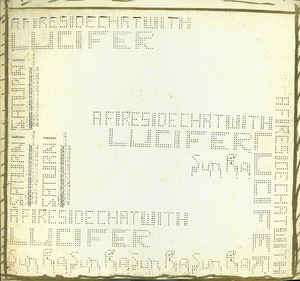 A FIRESIDE CHAT WITH
LUCIFER
SATURN
SATURN
SATURN
A FIRESIDE CHAT WITH
LUCIFER
Sun Ra
A FIRESIDE CHAT WITH
LUCIFER
A FIRESIDE CHAT WITH
LUCIFER
Sun Ra Sun Ra Sun Ra Sun Ra